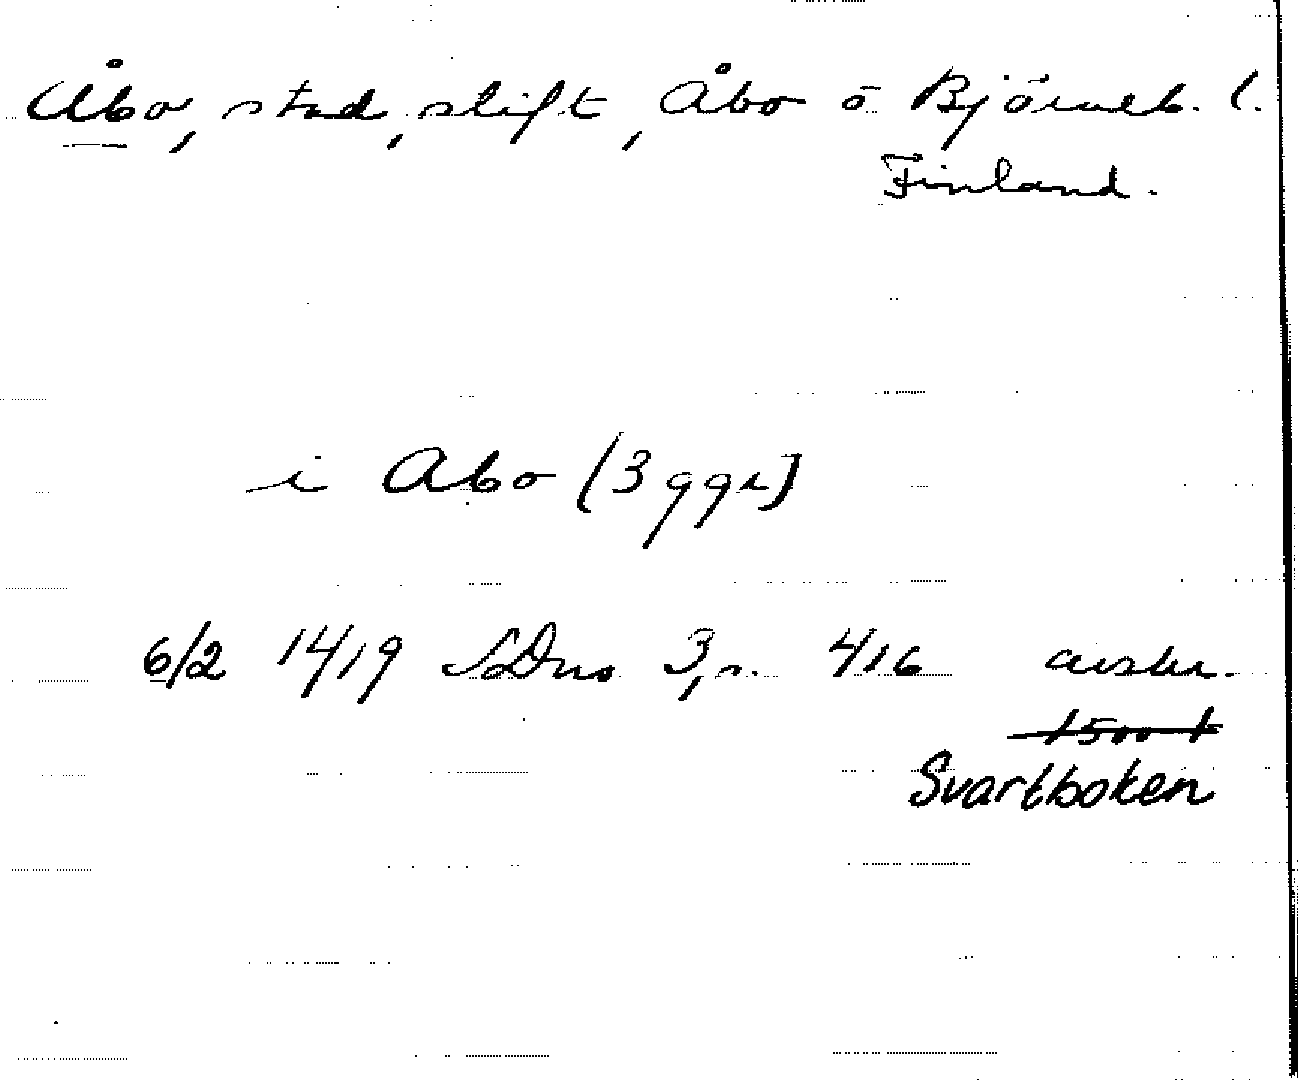 Åbo, stad, stift, Åbo o Björneb. l.
Finland.
i Abo (3 ggr)
6/2 1419 SDns 3, s. 416 avskr.
1500 t
Svartboken